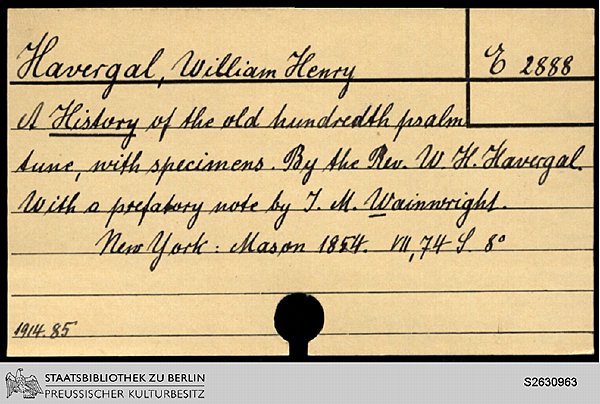 Havergal, William Henry
E 2888
A History of the old hundredth psalm
tune, with specimens. By the Rev. W. H. Havergal.
With a prefatory note by J. M. Wainwright.
New York: Mason 1854. VII, 74 S. 8°
1914. 85
STAATSBIBLIOTHEK ZU BERLIN
PREUSSISCHER KULTURBESITZ
S2630963